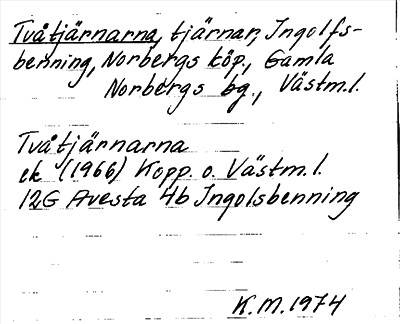 Tvåtjärnarna, tjärnar, Ingolfs-
benning, Norbergs köp., Gamla
Norbergs bg., Västm.l.
Tvåtjärnarna
ek (1966) Kopp. o. Västm.l.
12G Avesta 4b Ingolsbenning
K.M. 1974